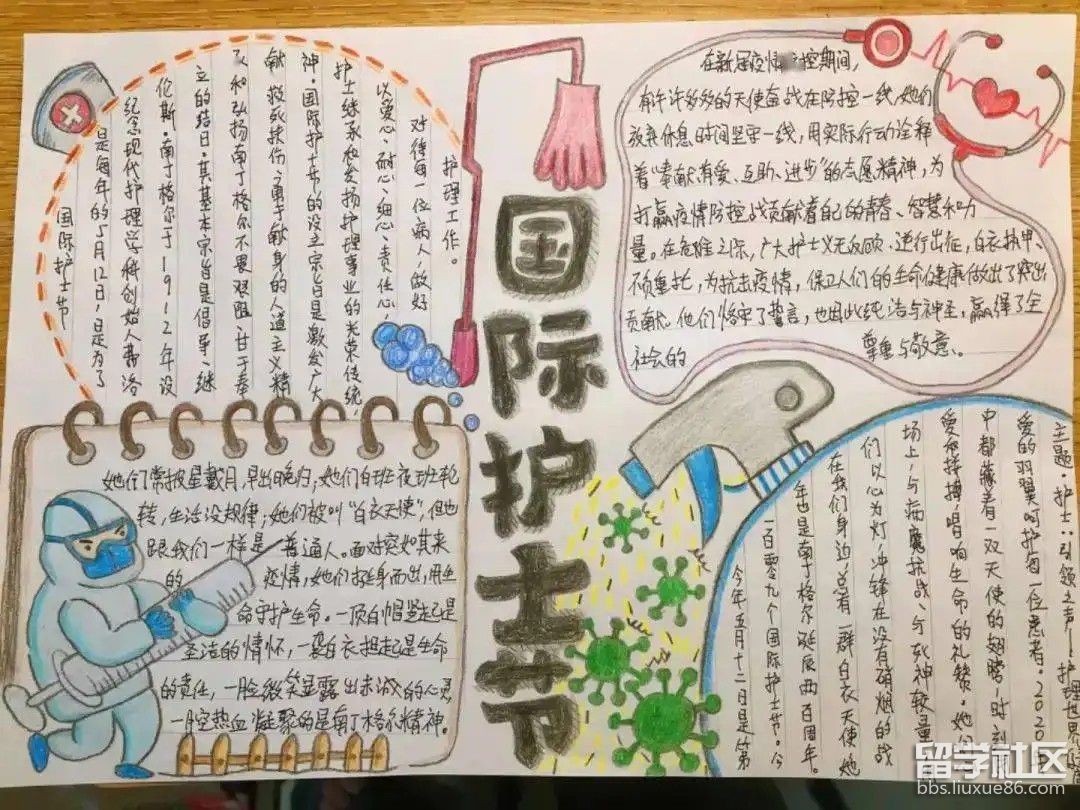 国际护士节
国际护士节
是每年的5月12日,是为了
纪念现代护理学科创始人弗洛
伦斯·南丁格尔于1912年设
立的节日。其基本宗旨是倡导、继
和弘扬南丁格尔不畏艰险、甘于奉
献、救死扶伤、勇于献身的人道主义精
神。国际护士节的设立宗旨是激发广大
护士继承和发扬护理事业的光荣传统,
以爱心、耐心、细心、责任心,
对待每一位病人,做好
护理工作。
在新冠疫情防控期间,
有许许多多的天使奋战在防控一线,她们
放弃休息时间坚守一线,用实际行动诠释
着“奉献有爱、互助、进步”的志愿精神,为
打赢疫情防控战贡献着自己的青春、智慧和力
量。在危难之际,广大护士义无反顾、逆行出征,白衣执甲、
不负重托,为抗击疫情,保卫人们的生命健康做出了突出
贡献。他们恪守了誓言,也因此纯洁与神圣,赢得了全
社会的 尊重与敬意。
她们常披星戴月,早出晚归,她们白班夜班轮
转,生活没规律;她们被叫“白衣天使”,但也
跟我们一样是普通人。面对突如其来
的疫情,她们挺身而出,用生
命守护生命。一顶白帽竖起是
圣洁的情怀,一袭白衣担起是生命
的责任,一脸微笑显露出赤诚的心灵,
一腔热血凝聚的是南丁格尔精神。
今年五月十二日是第
一百零九个国际护士节。今
年也是南丁格尔诞辰两百周年。
在我们身边,总有一群白衣天使她
们以心为灯,冲锋在没有硝烟的战
场上,与病魔抗战、与死神较量
爱和拼搏,唱响生命的礼赞。她们
中都藏着一双天使的翅膀,时刻用
爱的羽翼呵护每一位患者。2020
主题:护士:引领之声——护理
留学社区
bbs.liuxue86.com